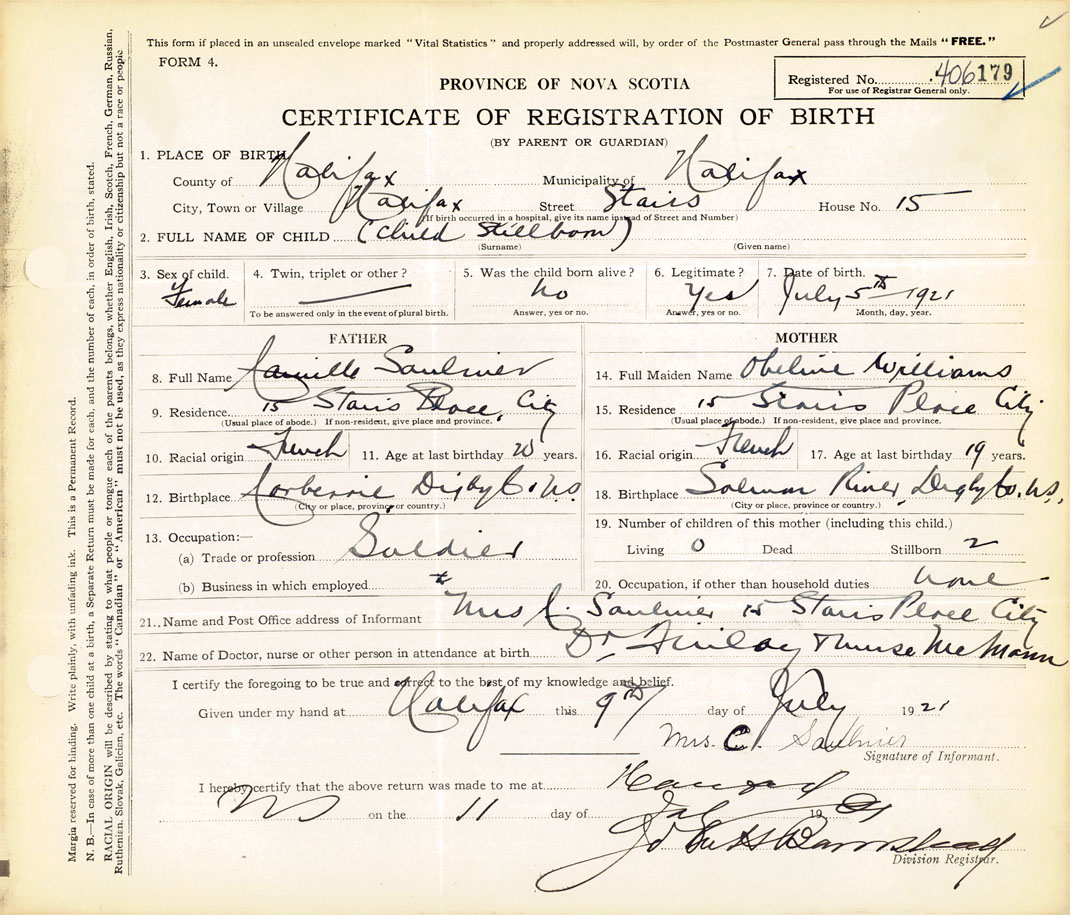 This form if placed in an unsealed envelope marked "Vital Statistics" and properly addressed will, by order of the Postmaster General pass through the Mails "FREE."
FORM 4.
Registered No. 406179
For use of Registrar General only.
PROVINCE OF NOVA SCOTIA
CERTIFICATE OF REGISTRATION OF BIRTH
(BY PARENT OR GUARDIAN)
1. PLACE OF BIRTH
County of Halifax Municipality of Halifax
City, Town or Village Halifax Street Stairs House No. 15
(If birth occurred in a hospital, give its name instead of Street and Number)
2. FULL NAME OF CHILD (Child Stillborn)
(Surname) (Given name)
3. Sex of child. 4. Twin, triplet or other? 5. Was the child born alive? 6. Legitimate? 7. Date of birth.
Female No Yes July 5th 1921
To be answered only in the event of plural birth. Answer, yes or no. Answer, yes or no. Month, day, year.
FATHER
8. Full Name Camille Saulnier
9. Residence 15 Stairs Place, City
(Usual place of abode.) If non-resident, give place and province.
10. Racial origin French 11. Age at last birthday 20 years.
12. Birthplace Corberrie Digby Co. N.S.
(City or place, province or country.)
13. Occupation:—
(a) Trade or profession Soldier
(b) Business in which employed
MOTHER
14. Full Maiden Name Obeline Williams
15. Residence 15 Stairs Place City
(Usual place of abode.) If non-resident, give place and province.
16. Racial origin French 17. Age at last birthday 19 years.
18. Birthplace Salmon River, Digby Co. N.S.
(City or place, province or country.)
19. Number of children of this mother (including this child.)
Living 0 Dead Stillborn 2
20. Occupation, if other than household duties none
21. Name and Post Office address of Informant Mrs C. Saulnier 15 Stairs Place City
22. Name of Doctor, nurse or other person in attendance at birth Dr. Finlay & nurse McMann
I certify the foregoing to be true and correct to the best of my knowledge and belief.
Given under my hand at Halifax this 9th day of July 1921
Mrs. C. Saulnier
Signature of Informant.
I hereby certify that the above return was made to me at
on the 11 day of Jul 1921
Division Registrar.
Margin reserved for binding. Write plainly, with unfading ink. This is a Permanent Record.
N. B.—In case of more than one child at a birth, a Separate Return must be made for each, and the number of each, in order of birth, stated.
RACIAL ORIGIN will be described by stating to what people or tongue each of the parents belongs, whether English, Irish, Scotch, French, German, Russian,
Ruthenian, Slovak, Galician, etc. The words "Canadian" or "American" must not be used, as they express nationality or citizenship but not a race or people